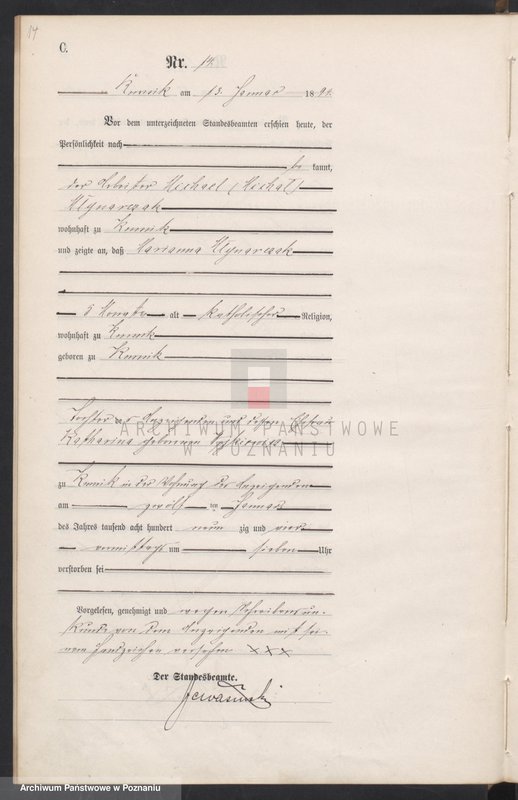 14
C.
Nr. 14.
Kurnik am 13. Januar 1894.
Vor dem unterzeichneten Standesbeamten erschien heute, der
Persönlichkeit nach
be kannt,
der Arbeiter Michael (Michał)
wohnhaft zu Kurnik
und zeigte an, daß Marianna
5 Monate alt katholischer Religion,
wohnhaft zu Kurnik
geboren zu Kurnik
Tochter des Anzeigenden und dessen Ehefrau
Katharina geborenen
ARCHIWUM PAŃSTWOWE
W POZNANIU
zu Kurnik in der Wohnung des Anzeigenden
am zwölf ten Januar
des Jahres tausend acht hundert neun zig und vier
vormittags um sieben Uhr
verstorben sei
Vorgelesen, genehmigt und wegen Schreibensun-
kunde von dem Anzeigenden mit sei-
nem Handzeichen versehen XXX
Der Standesbeamte.
Archiwum Państwowe w Poznaniu